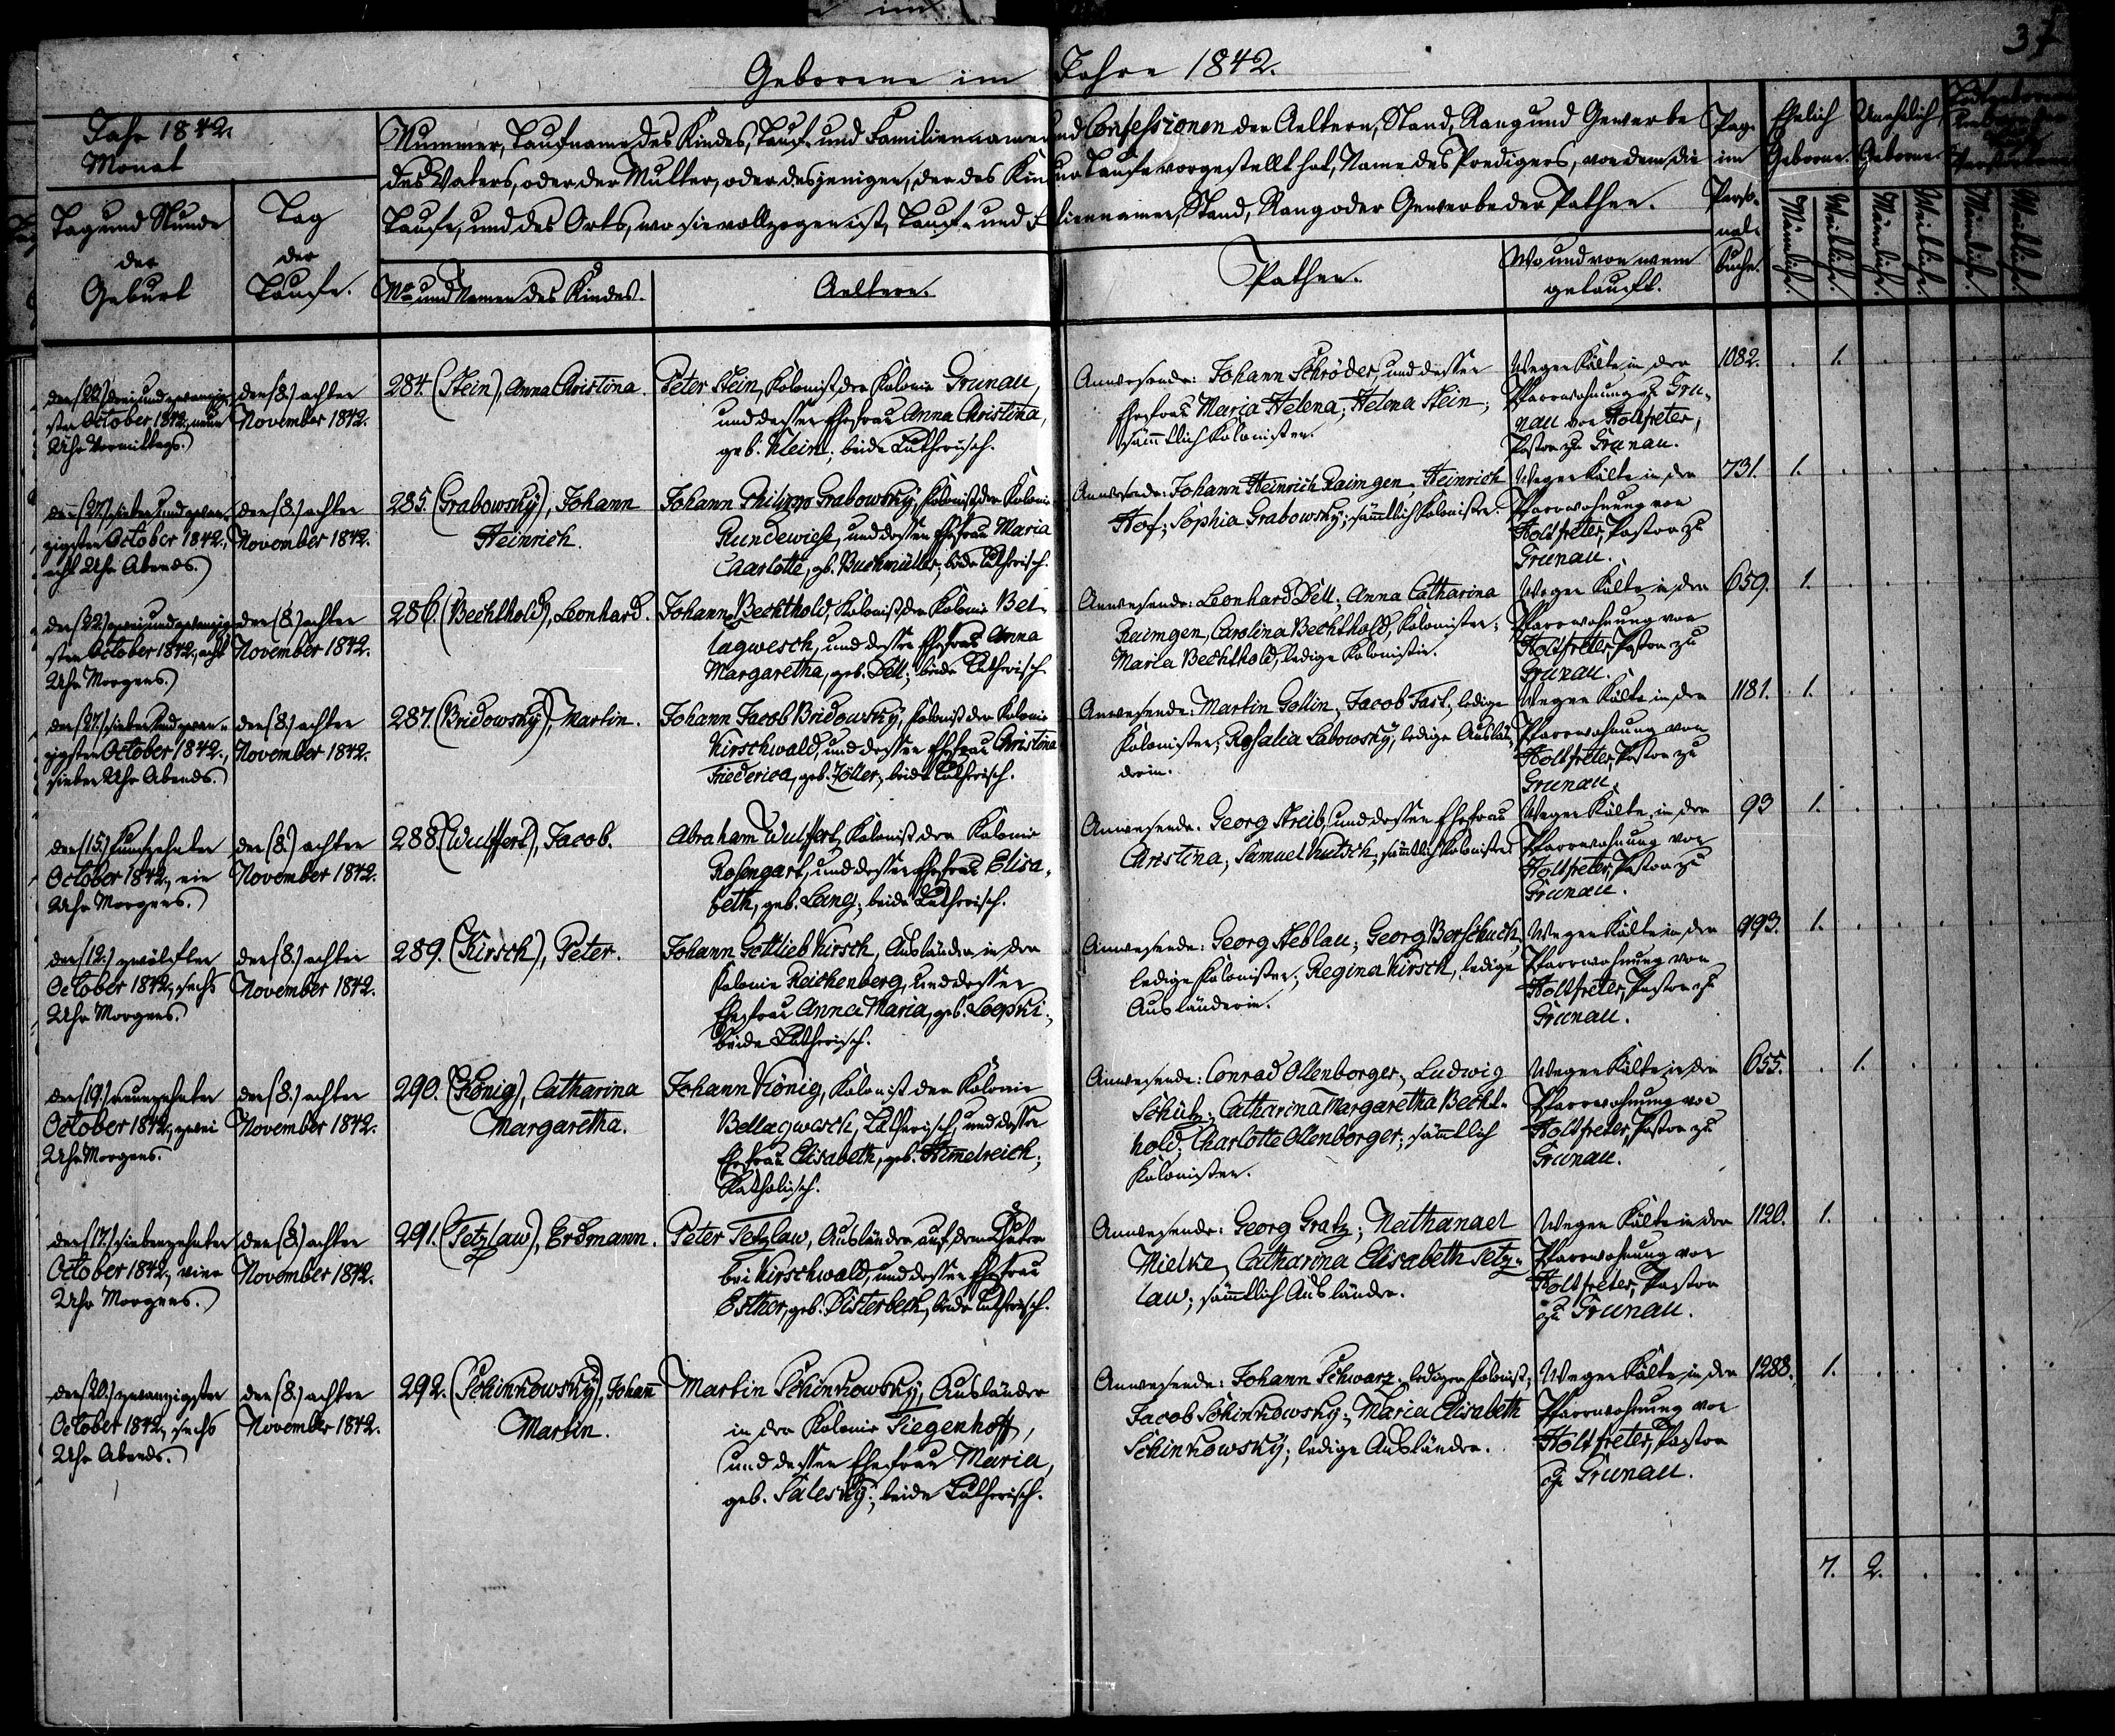 37
Geborene im Jahre 1842.
Jahr 1842.
Monat
Tag und Stunde
der
Geburt
Tag
der
Taufe.
Nummer, Taufname des Kindes, Tauf- und Familiennamen und Confessionen der Aeltern, Stand, Rang und Gewerbe
des Vaters, oder der Mutter, oder desjenigen, der das Kind zur Taufe vorgestellt hat, Name des Predigers, von dem die
Taufe, und des Orts, wo sie vollzogen ist, Tauf- und Familiennamen, Stand, Rang oder Gewerbe der Pathen.
No und Namen des Kindes.
Aeltern.
Pathen.
Wo und von wem
getauft.
Pag.
im
Perso-
nal-
buche.
Ehelich
Geborne.
Unehelich
Geborne.
Männliche.
Weibliche.
Männliche.
Weibliche.
Männliche.
Weibliche.
den (23.) dreiundzwanzig-
sten October 1842., neun
Uhr Vormittags.)
den (8.) achten
November 1842.
284. (Stein), Anna Christina.
Peter Stein, Kolonist der Kolonie Grunau,
und dessen Ehefrau Anna Christina,
geb. Klein; beide Lutherisch.
Anwesende: Johann Schröder, und dessen
Ehefrau Maria Helena; Helena Stein;
sämmtlich Kolonisten.
Wegen Kälte in der
Pfarrwohnung zu Gru-
nau von Holtfreter,
Pastor zu Grunau.
1082. . 1.
den (27.) sieben und zwan-
zigsten October 1842.,
acht Uhr Abends.)
den (8.) achten
November 1842.
285. (Grabowsky), Johann
Heinrich.
Johann Philipp Grabowsky, Kolonist der Kolonie
Rundewiese, und dessen Ehefrau Maria
Charlotte, geb. Buchmüller; beide Lutherisch.
Anwesende: Johann Heinrich Raimgen; Heinrich
Hof; Sophia Grabowsky; sämtlich Kolonisten.
Wegen Kälte in der
Pfarrwohnung von
Holtfreter, Pastor zu
Grunau.
731. 1.
den (22.) zweiundzwanzig-
sten October 1842., acht
Uhr Morgens.)
den (8.) achten
November 1842.
286. (Bechthold), Leonhard.
Johann Bechthold, Kolonist der Kolonie Bel-
lagwesch, und dessen Ehefrau Anna
Margaretha, geb. Dell; beide Lutherisch.
Anwesende: Leonhard Dell; Anna Catharina
Raimgen, Carolina Bechthold, Kolonisten;
Maria Bechthold, ledige Kolonistin.
Wegen Kälte in der
Pfarrwohnung von
Holtfreter, Pastor zu
Grunau.
659. 1.
den (27.) sieben und zwan-
zigsten October 1842.,
sieben Uhr Abends.)
den (8.) achten
November 1842.
287. (Bridowsky), Martin.
Johann Jacob Bridowsky, Kolonist der Kolonie
Kirschwald, und dessen Ehefrau Christina
Friederica, geb. Zöller; beide Lutherisch.
Anwesende: Martin Gollin; Jacob Fast, ledige
Kolonisten; Rosalia Labowsky; ledige Auslän-
derin.
Wegen Kälte in der
Pfarrwohnung von
Holtfreter, Pastor zu
Grunau.
1181. 1.
den (15.) funfzehnten
October 1842., ein
Uhr Morgens.)
den (8.) achten
November 1842.
288. (Wulffert), Jacob.
Abraham Wulffert, Kolonist der Kolonie
Rosengart, und dessen Ehefrau Elisa-
beth, geb. Lang; beide Lutherisch.
Anwesende: Georg Streib, und dessen Ehefrau
Christina; Samuel Kutsch; sämtlich Kolonisten.
Wegen Kälte, in der
Pfarrwohnung von
Holtfreter, Pastor zu
Grunau.
93 1.
den (12.) zwölften
October 1842., sechs
Uhr Morgens.)
den (8.) achten
November 1842.
289. (Kirsch), Peter.
Johann Gottlieb Kirsch, Ausländer in der
Kolonie Reichenberg, und dessen
Ehefrau Anna Maria, geb. Loepki;
beide Lutherisch.
Anwesende: Georg Steblau; Georg Berschuck,
ledige Kolonisten; Regina Kirsch, ledige
Ausländerin.
Wegen Kälte in der
Pfarrwohnung von
Holtfreter, Pastor zu
Grunau.
993. 1.
den (19.) neunzehnten
October 1842., zwei
Uhr Morgens.
den (8.) achten
November 1842.
290. (König), Catharina
Margaretha.
Johann König, Kolonist der Kolonie
Bellagwesch, Lutherisch, und dessen
Ehefrau Elisabeth, geb. Himelreich;
Katholisch.
Anwesende: Conrad Ollenborger; Ludwig
Schütz; Catharina Margaretha Becht-
hold; Charlotte Ollenborger; sämmtlich
Kolonisten.
Wegen Kälte in der
Pfarrwohnung von
Holtfreter, Pastor zu
Grunau.
655. . 1.
den (17.) siebenzehnten
October 1842., vier
Uhr Morgens.)
den (8.) achten
November 1842.
291. (Tetzlaw), Erdmann.
Peter Tetzlaw, Ausländer auf dem Chutor
bei Kirschwald, und dessen Ehefrau
Esther, geb. Disterbeck, beide Lutherisch.
Anwesende: Georg Gratz; Nathanael
Mielke, Catharina Elisabeth Tetz-
law; sämmtlich Ausländer.
Wegen Kälte in der
Pfarrwohnung von
Holtfreter, Pastor
zu Grunau.
1120. 1.
den (20.) zwanzigsten
October 1842., sechs
Uhr Abends.)
den (8.) achten
November 1842.
292. (Schinkowsky), Johann
Martin.
Martin Schinkowsky, Ausländer
in der Kolonie Tiegenhoff,
und dessen Ehefrau Maria,
geb. Salesky; beide Lutherisch.
Anwesende: Johann Schwarz, lediger Kolonist;
Jacob Schinkowsky; Maria Elisabeth
Schinkowsky; ledige Ausländer.
Wegen Kälte in der
Pfarrwohnung von
Holtfreter, Pastor
zu Grunau.
1288. 1.
7. 2.